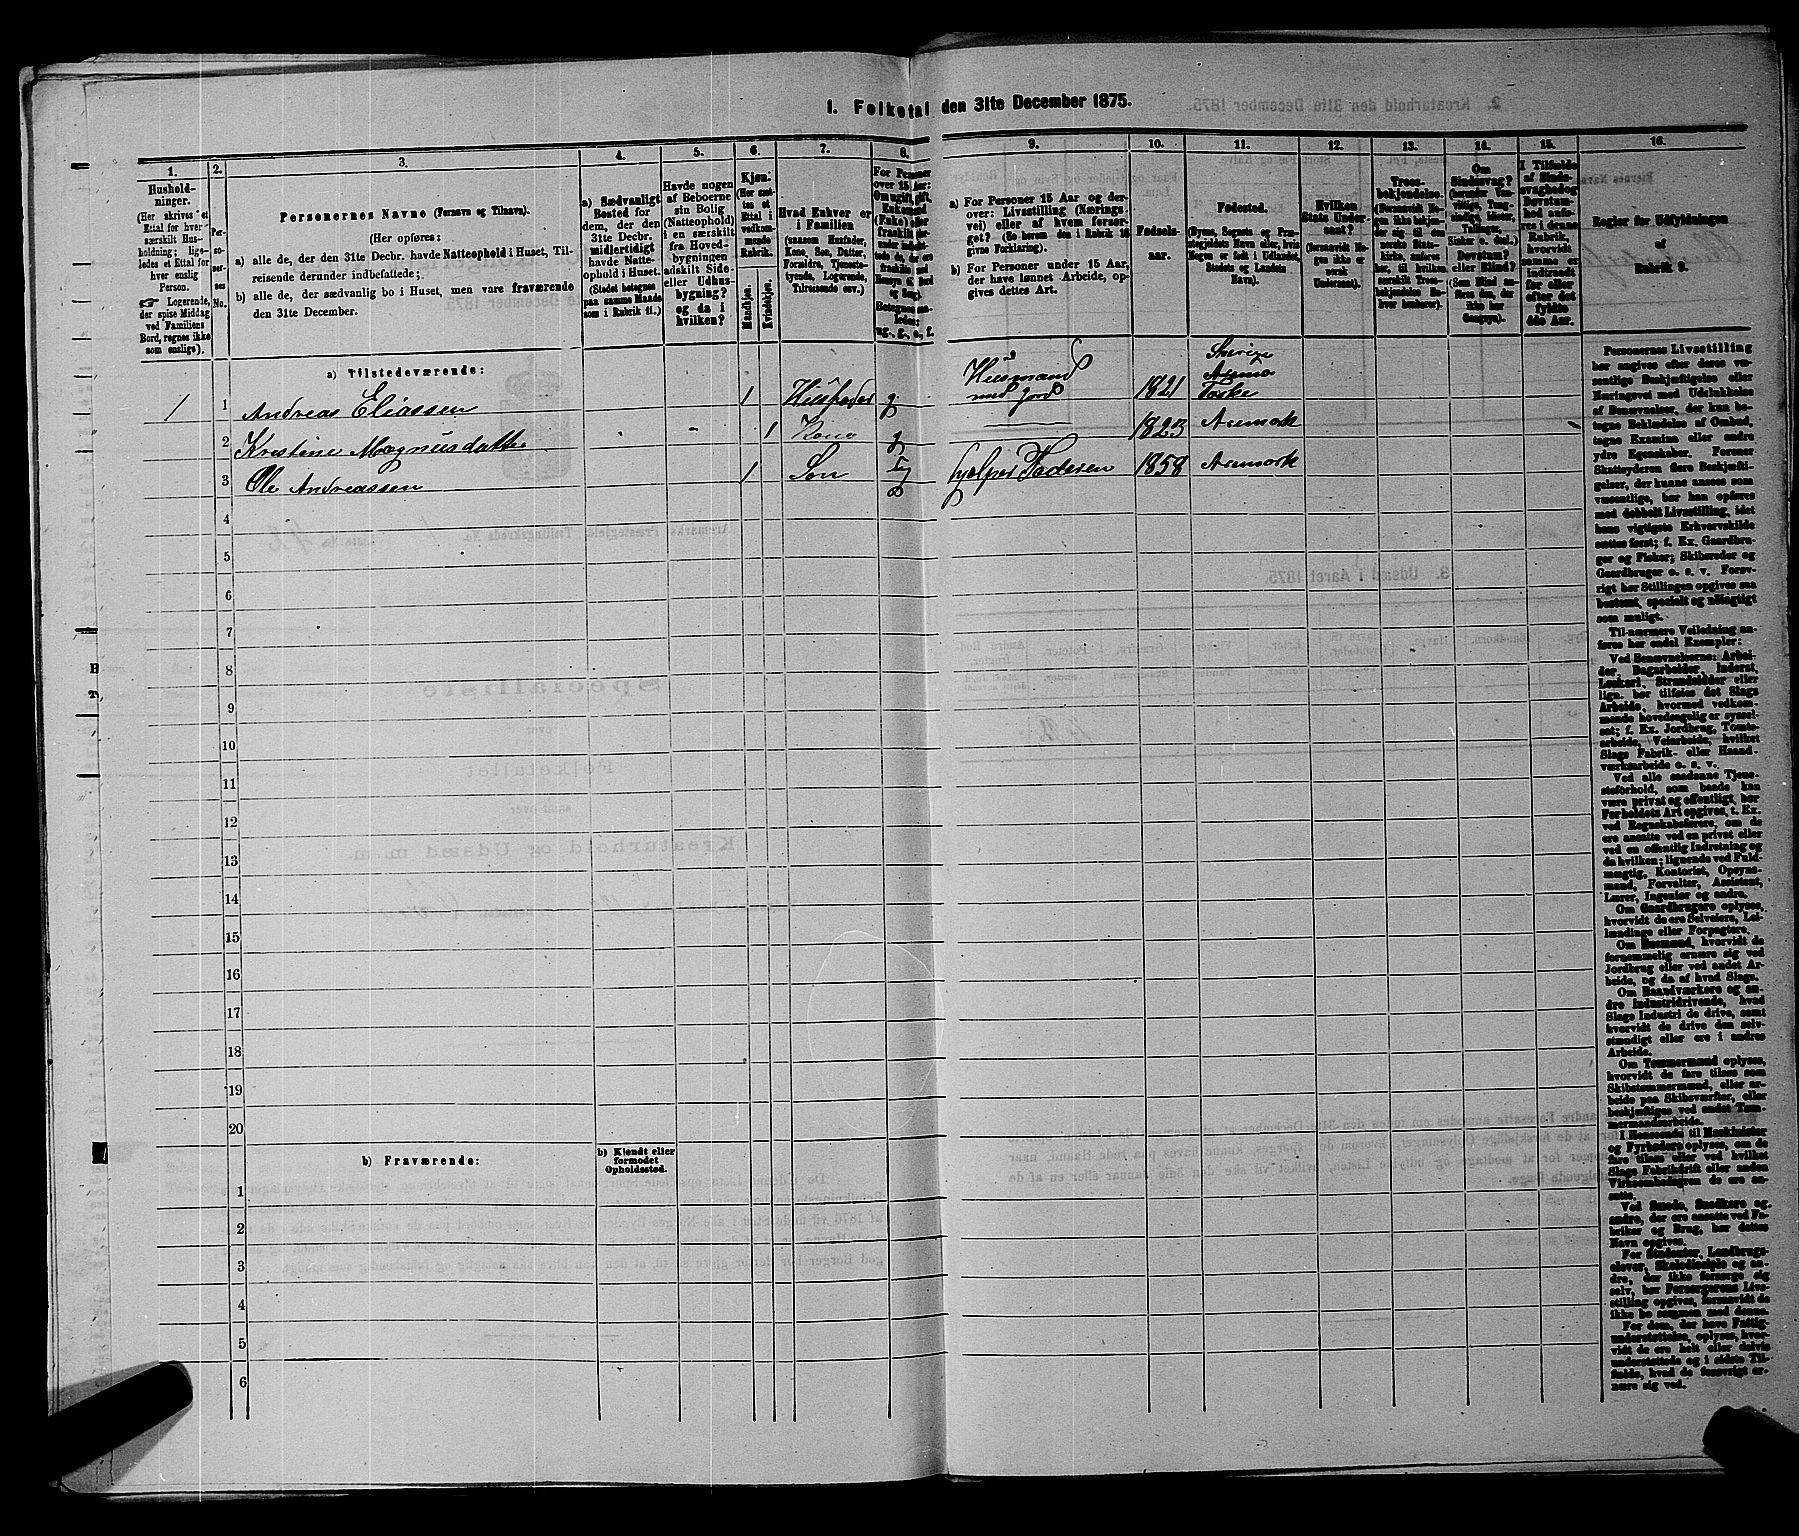 1. Folketal den 31te December 1875.
1.
Hushold-
ninger.
(Her skrives et
Ettal for hver
særskilt Hus-
holdning; lige-
ledes et Ettal for
hver enslig
Person.
☞ Logerende,
der spise Middag
ved Familiens
Bord, regnes ikke
som enslige).
2.
Per-
so-
ner-
nes
No.
3.
Personernes Navne (Fornavn og Tilnavn).
(Her opføres:
a) alle de, der den 31te Decbr. havde Natteophold i Huset, Til-
reisende derunder indbefattede;
b) alle de, der sædvanlig bo i Huset, men vare fraværende
den 31te December.
4.
a) Sædvanligt
Bosted for
dem, der den
31te Decbr.
midlertidigt
havde Natte-
ophold i Huset.
(Stedet betegnes
paa samme Maade
som i Rubrik 11.)
5.
Havde nogen
af Beboerne
sin Bolig
(Natteophold)
i en særskilt
fra Hoved-
bygningen
adskilt Side-
eller Udhus-
bygning?
og da i
hvilken?
6.
Kjøn.
(Her sæt-
tes et
Ettal i
vedkom-
mende
Rubrik.
Mandkjøn.
Kvindekjøn.
7.
Hvad Enhver er
i Familien
(saasom Husfader,
Kone, Søn, Datter,
Forældre, Tjeneste-
tyende, Logerende,
Tilreisende osv.)
8.
For Personer
over 15 Aar:
Om ugift, gift,
Enkemand
(Enke) eller
fraskilt
ug., g., e., f.
9.
a) For Personer 15 Aar og der-
over: Livsstilling (Nærings-
vei) eller af hvem forsør-
get? (Se herom den i Rubrik 16
givne Forklaring).
b) For Personer under 15 Aar,
der have lønnet Arbeide, op-
gives dettes Art.
10.
Fødsels-
aar.
11.
Fødested.
(Byens, Sognets og Præ-
stegjeldets Navn eller, hvis
Nogen er født i Udlandet,
Stedets og Landets
Navn).
12.
Hvilken
Stats Under-
saat?
(forsaavidt No-
gen ikke er
norsk
Undersaat).
13.
Troes-
bekjendelse.
(Personer, der
ikke bekjen-
der sig til den
norske Stats-
kirke, anføres
her, til hvilken
særskilt Troes-
bekjendelse En-
hver henhører).
14.
Om
Sindssvag?
Døvstum?
eller Blind?
15.
I Tilfælde
af Sinds-
svaghed og
Døvstum-
hed anfø-
res i denne
Rubrik,
hvorvidt
samme er
indtraadt
før eller
efter det
fyldte
4de Aar.
16.
Regler for Udfyldningen
af
Rubrik 9.
a) Tilstedeværende:
1 1 Andreas Eliassen 1 Husfader g Husmand med jord 1821 Aremo
2 Kristine Magnusdatter 1 Kone g 1823 Aremork
3 Ole Andreassen 1 Søn ug hjelper Faderen 1858 Aremork
4
5
6
7
8
9
10
11
12
13
14
15
16
17
18
19
20
b) Fraværende:
b) Kjendt eller
formodet
Opholdssted.
1
2
3
4
5
6
Personernes Livsstilling
bør angives efter deres væ-
sentlige Beskjæftigelse eller
Næringsvei med Udelukkelse
af Benævnelser, der kun be-
tegne Beklædelse af Ombud,
tagne Examina eller andre
ydre Egenskaber. Forener
Skatteyderen flere Beskjæfti-
gelser, der kunne ansees som
væsentlige, bør han opføres
med dobbelt Livsstilling, idet
hans vigtigste Erhvervskilde
sættes først; f. Ex. Gaardbru-
ger og Fisker; Skibsreder og
Gaardbruger o. s. v. Forøv-
rigt bør Stillingen opgives saa
bestemt, specielt og nøiagtigt
som muligt.
Til nærmere Veiledning an-
føres her endel Exempler:
Ved Benævnelserne: Arbei-
der, Dagarbeider, Inderst,
Løskarl, Strandsidder eller
lign. bør tilføies det Slags
Arbeide, hvormed vedkom-
mende hovedsagelig er syssel-
sat; f. Ex. Jordbrug, Tomte-
arbeide, Veiarbeide, hvilket
Slags Fabrik- eller Haand-
værksarbeide o. s. v.
Ved alle saadanne Tjene-
steforhold, som baade kan
være privat og offentligt, bør
Forholdets Art opgives, t. Ex.
ved Regnskabsførere, om de
ere ansatte ved en privat eller
ved en offentlig Indretning og
da hvilken; lignende ved Fuld-
mægtig, Kontorist, Opsyns-
mand, Forvalter, Assistent,
Lærer, Ingeniør og andre.
Om Gaardbrugere oplyses,
hvorvidt de ere Selveiere, Lei-
lændinge eller Forpagtere.
Om Husmænd, hvorvidt de
fornemmelig ernære sig ved
Jordbrug eller ved andet Ar-
beide, og da af hvad Slags.
Om Haandværkere og an-
dre Industridrivende, hvad
Slags Industri de drive, samt
hvorvidt de drive den selv-
stændigt eller ere i andres
Arbeide.
Om Tømmermænd oplyses,
hvorvidt de fare tilsøs som
Skibstømmermænd, eller ar-
beide paa Skibsværfter, eller
beskjæftiges ved andet Tøm-
mermandsarbeide.
I Henseende til Maskinister
og Fyrbødere oplyses, om de
fare tilsøs eller ved hvilket
Slags Fabrikdrift eller anden
Virksomhedsgren de ere an-
satte.
Ved Smede, Snedkere og
andre, der ere ansatte ved Fa-
briker og Brug, bør dettes
Navn opgives.
For Studenter, Landbrugs-
elever, Skoledisciple og an-
dre, der ikke forsørge sig
selv, bør Forsørgerens Livs-
stilling opgives, forsaavidt de
ikke bo sammen med denne.
For dem, der have Fattig-
understøttelse, oplyses, hvor-
vidt de ere helt eller delvis
understøttede og i sidste Til-
fælde, hvad de forøvrigt er-
nære sig ved.